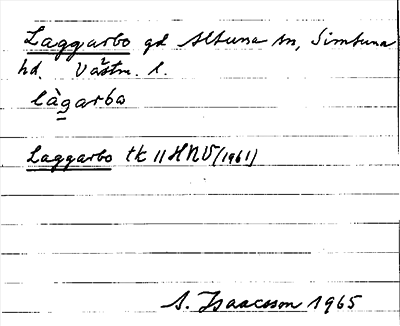 Laggarbo gd Altuna sn, Simtuna
hd. Västm. l.
làgarbo
Laggarbo tk 11HNV(1961)
S. Isaacsson 1965